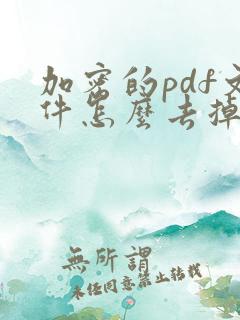 加密的pdf文
件怎麼去掉
無所謂
未经同意禁止转载